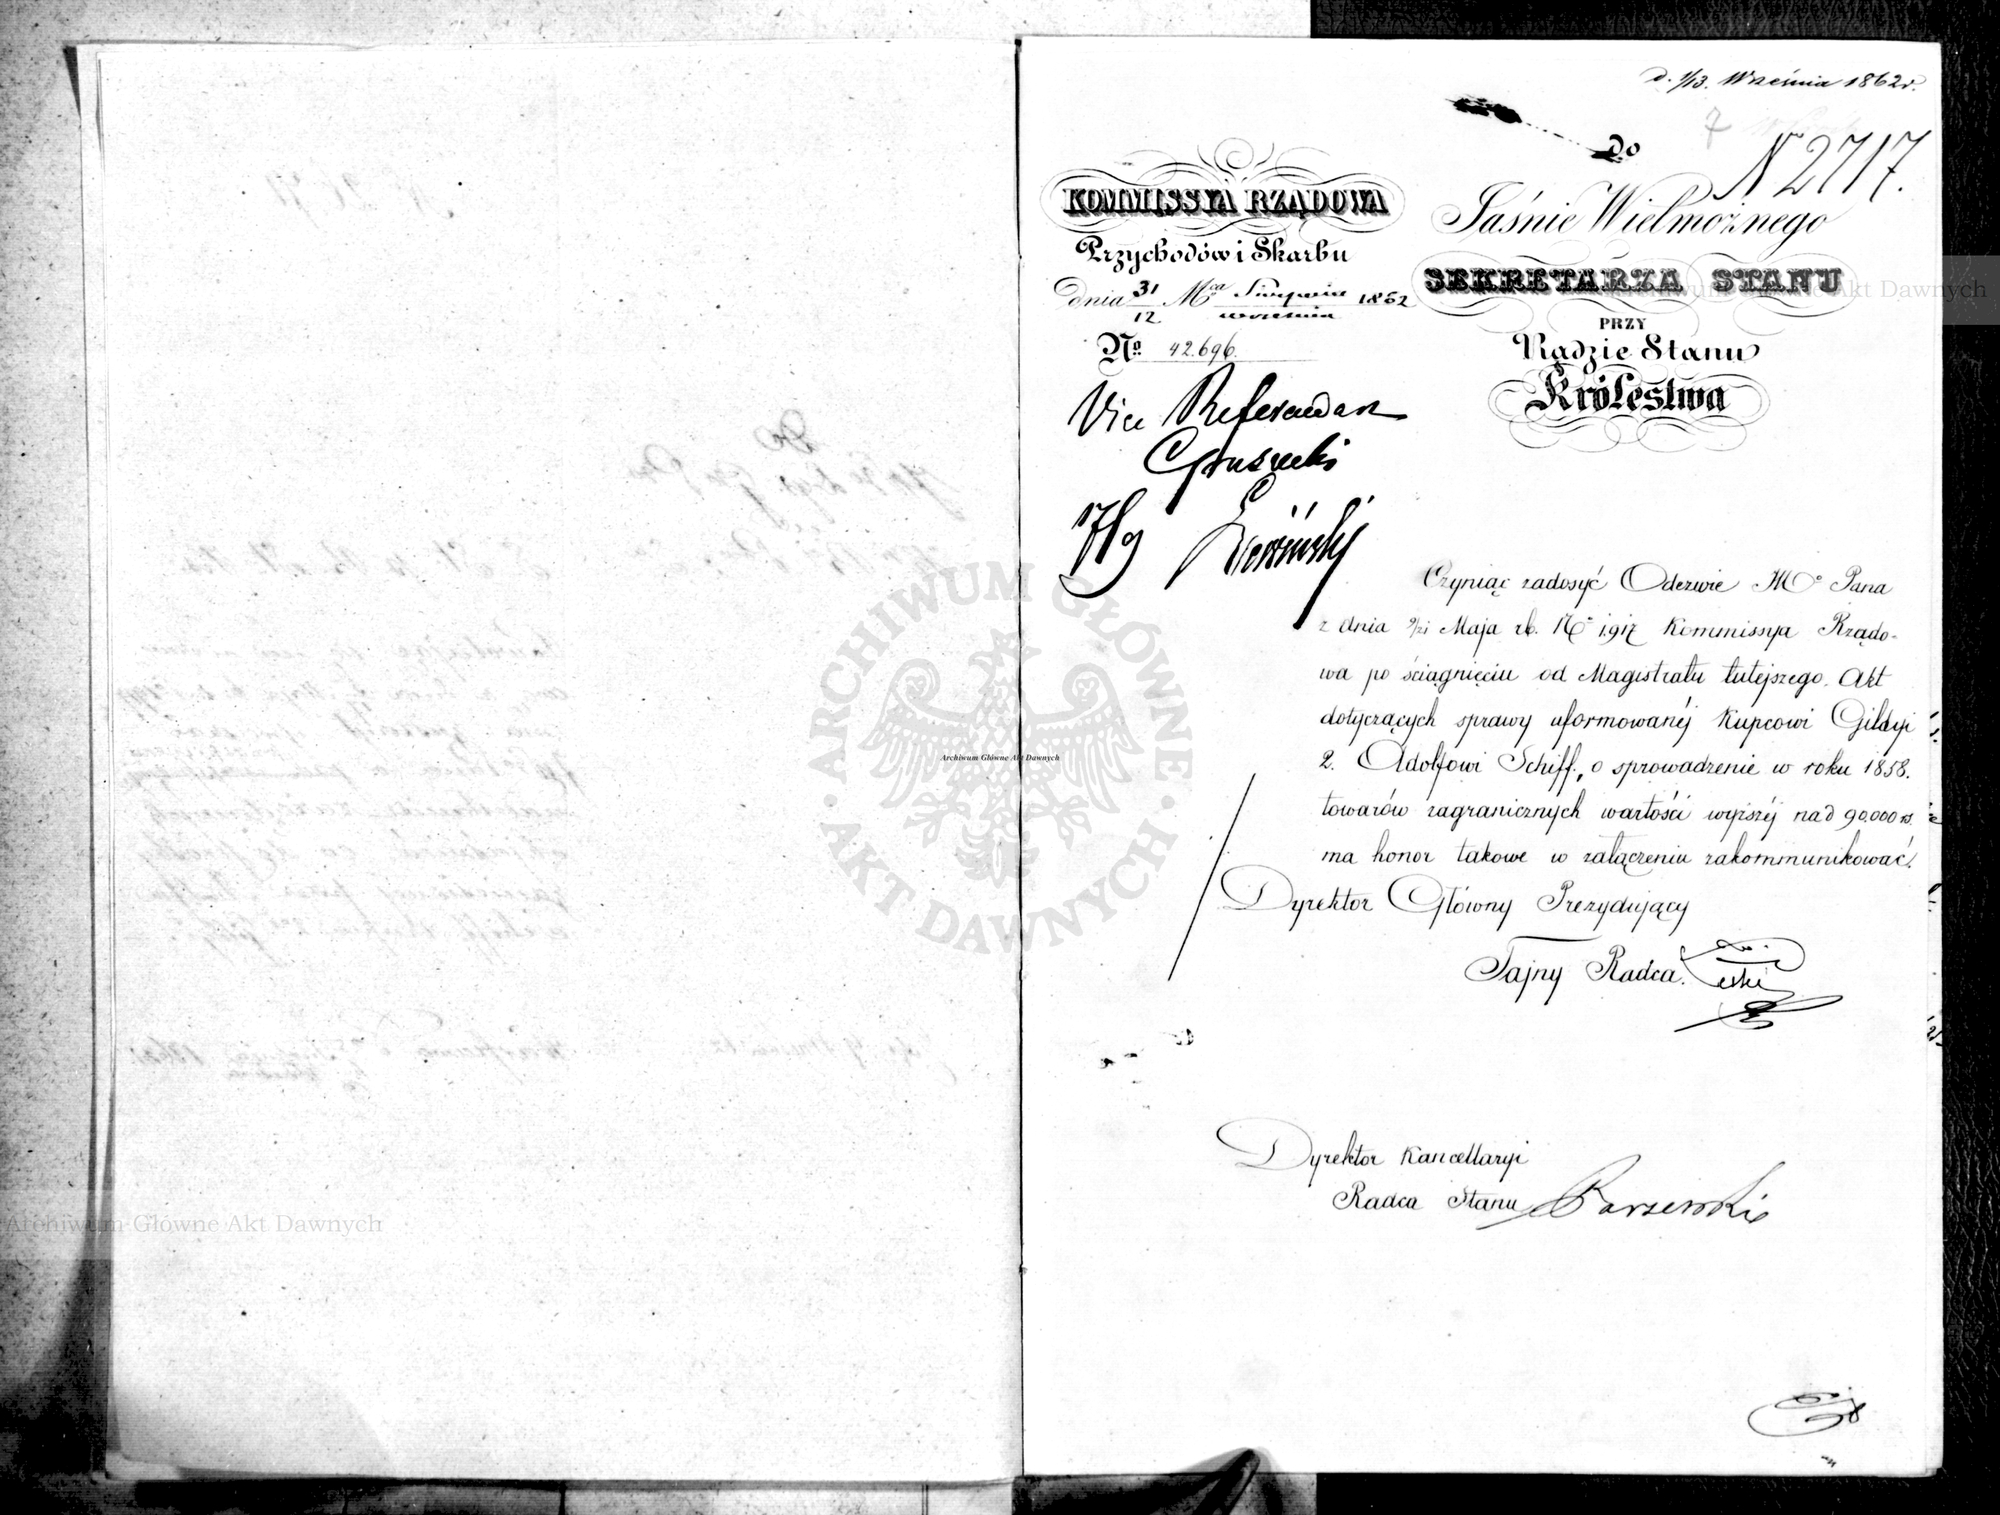 d. 1/13. Września 1862 r.
7
do
N 2717.
KOMMISSYA RZĄDOWA
Przychodów i Skarbu
dnia 31/12 Mca Sierpnia/Września 1862
No 42.696.
Jaśnie Wielmożnego
SEKRETARZA STANU
PRZY
Radzie Stanu
Królestwa
Vice Referendarz
Gruszecki
17/9
Czyniąc zadosyć Odezwie JWo Pana
z dnia 9/21 Maja rb. No 1,917 Kommissya Rządo-
wa po ściągnięciu od Magistratu tutejszego Akt
dotyczących sprawy uformowanéj Kupcowi Gildyi
2. Adolfowi Schiff, o sprowadzenie w roku 1858.
towarów zagranicznych wartości wyższéj nad 90.000 rs.
ma honor takowe w załączeniu zakommunikować.
Dyrektor Główny Prezydujący
Tajny Radca.
Dyrektor Kancellaryi
Radca Stanu
Archiwum Główne Akt Dawnych
ARCHIWUM GŁÓWNE
AKT DAWNYCH
Archiwum Główne Akt Dawnych
Archiwum Główne Akt Dawnych